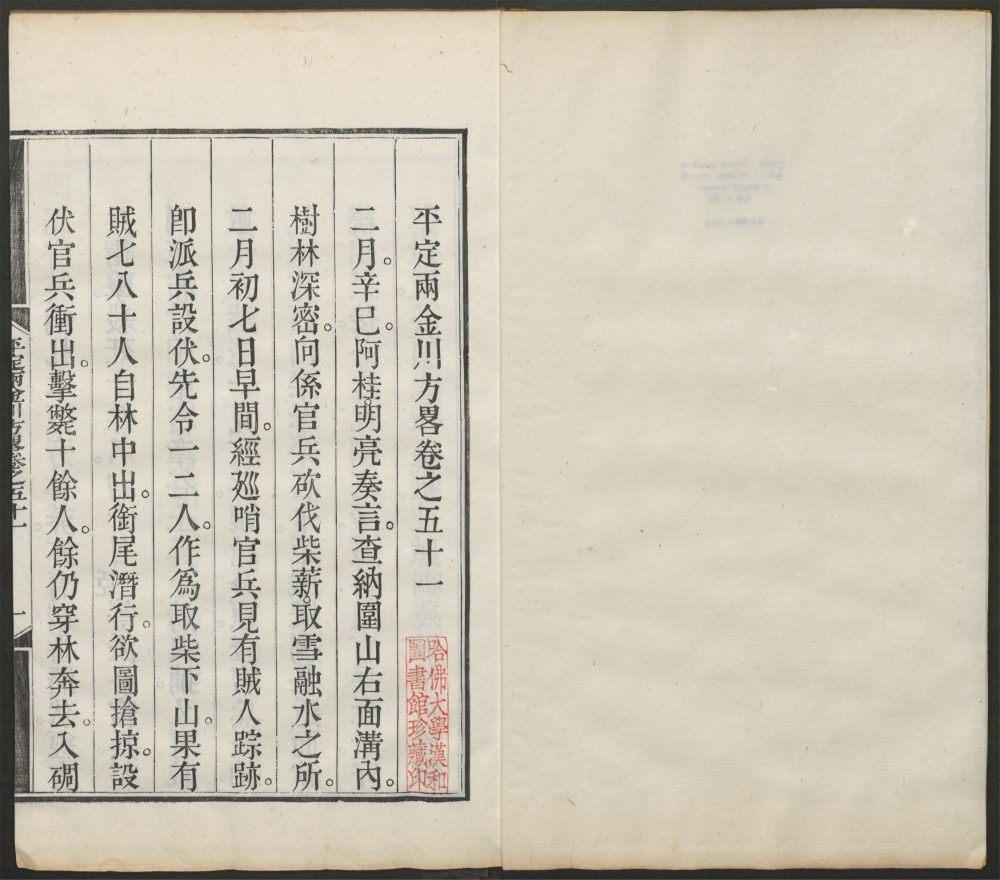 平定兩金川方畧卷之五十一
二月。辛巳。阿桂。明亮奏言。查納圍山右面溝內。
樹林深密。向係官兵砍伐柴薪。取雪融水之所。
二月初七日早間。經廵哨官兵見有賊人踪跡。
卽派兵設伏。先令一二人。作爲取柴下山。果有
賊七八十人自林中出。銜尾潛行。欲圖搶掠。設
伏官兵衝出。擊斃十餘人。餘仍穿林奔去。入碉
平定兩金川方畧卷之五十一
一
哈佛大學漢和
圖書館珍藏印